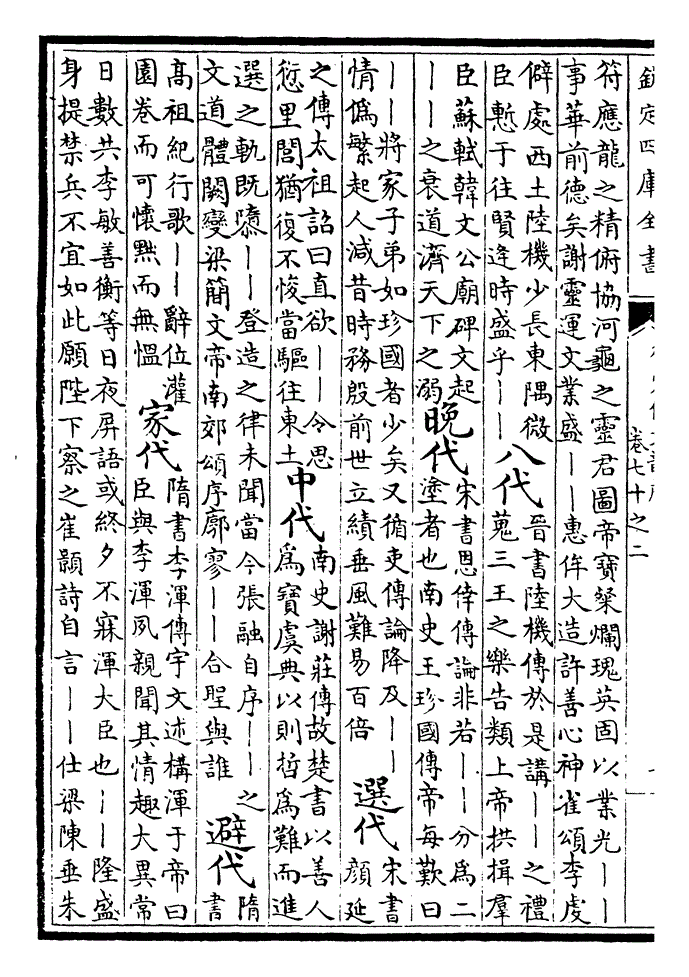 欽定四庫全書
卷七十之二
符應龍之精俯協河龜之靈君圖帝寶粲爛瑰英固以業光——
事華前德矣謝靈運文業盛——惠侔大造許善心神雀頌李虔
僻處西土陸機少長東隅微
臣慙于往賢逢時盛乎——
八代
晉書陸機傳於是講——之禮
蒐三王之樂告類上帝拱揖羣
臣蘇軾韓文公廟碑文起
——之衰道濟天下之溺
晚代
宋書恩倖傳論非若——分為二
塗者也南史王珍國傳帝每歎曰
——將家子弟如珍國者少矣又循吏傳論降及——
情偽繁起人減昔時務殷前世立績垂風難易百倍
選代
宋書
顏延
之傳太祖詔曰直欲——令思
愆里閭猶復不悛當驅往東土
中代
南史謝莊傳故楚書以善人
為寶虞典以則哲為難而進
選之軌既隳——登造之律未聞當今張融自序——之
文道體闕變梁簡文帝南郊頌序廓寥——合聖與誰
避代
隋
書
高祖紀行歌——辭位灌
園巷而可懷黙而無愠
家代
隋書李渾傳宇文述搆渾于帝曰
臣與李渾夙親聞其情趣大異常
日數共李敏善衡等日夜屏語或終夕不寐渾大臣也——隆盛
身提禁兵不宜如此願陛下察之崔顥詩自言——仕梁陳垂朱